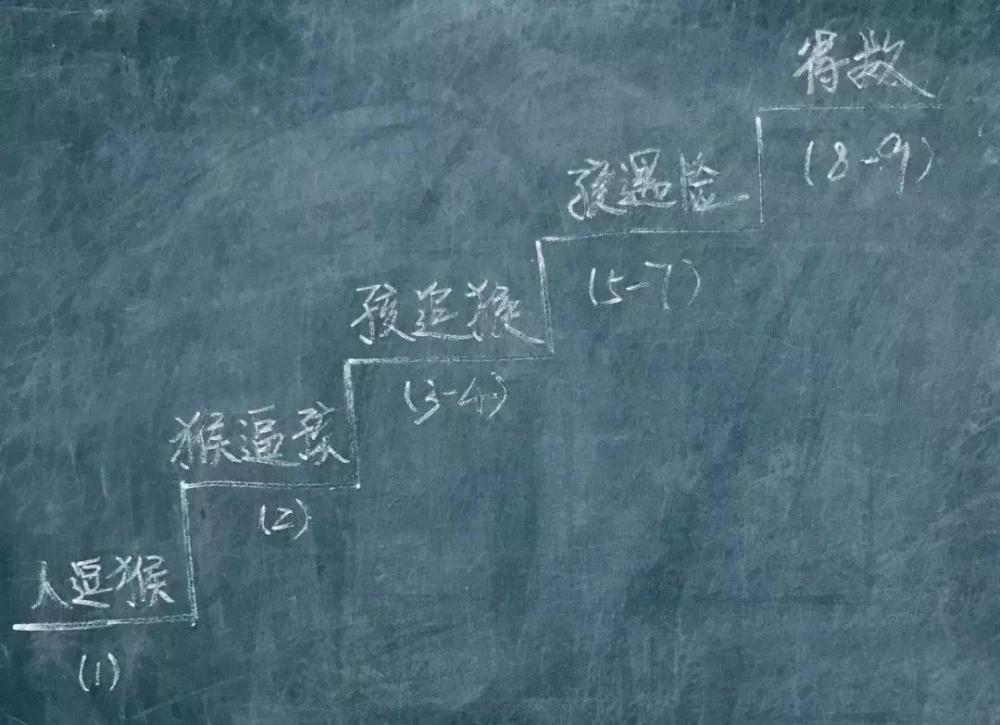 得救
(8-9)
孩遇险
(5-7)
孩追猴
(3-4)
猴逼孩
(2)
人逗猴
(1)